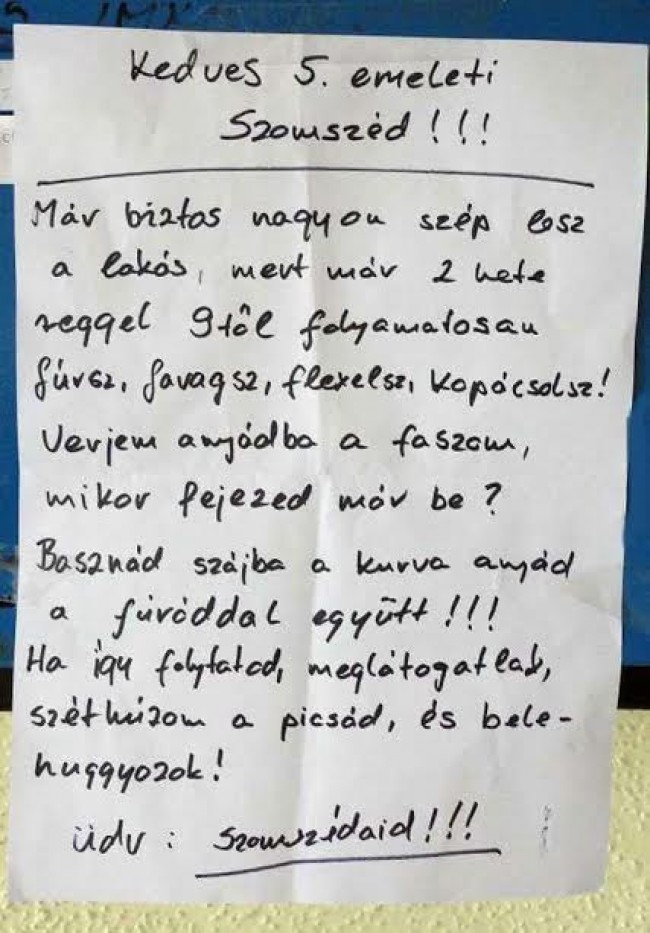 Kedves 5. emeleti
Szomszéd!!!
Már biztos nagyon szép lesz
a lakás, mert már 2 hete
reggel 9től folyamatosan
fúrsz, faragsz, flexelsz, kopácsolsz!
Verjem anyádba a faszom,
mikor fejezed már be?
Basznád szájba a kurva anyád
a fúróddal együtt!!!
Ha így folytatod, meglátogatlak,
széthúzom a picsád, és bele-
huggyozok!
üdv: szomszédaid!!!